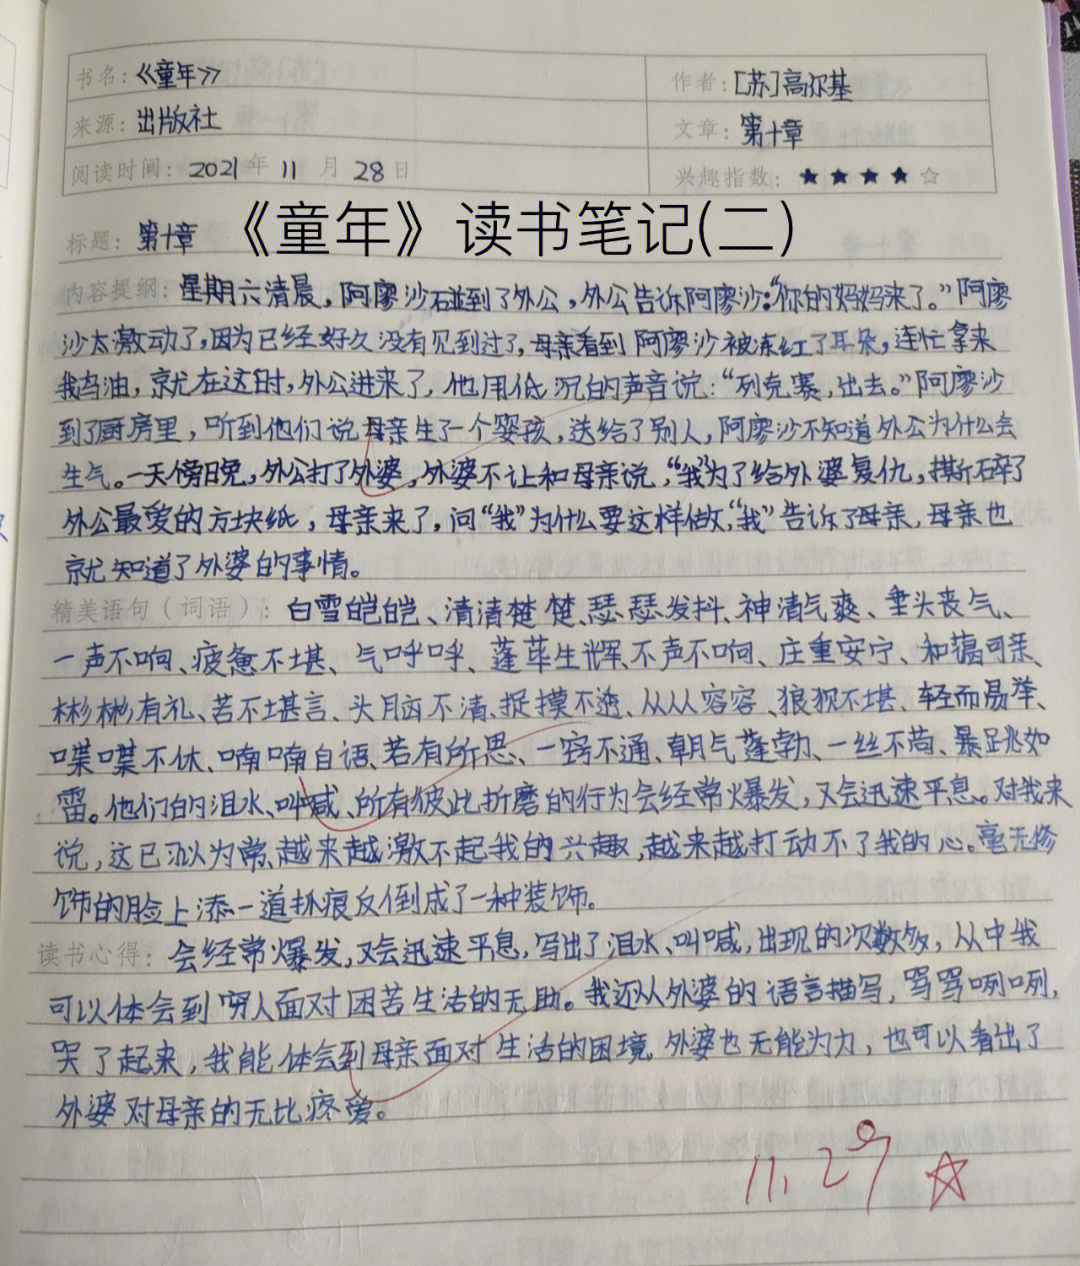 书名：《童年》
作者：[苏]高尔基
来源：出版社
文章：第十章
阅读时间：2021年11月28日
兴趣指数：★★★★☆
《童年》读书笔记(二)
标题：第十章
内容提纲：星期六清晨，阿廖沙碰到了外公，外公告诉阿廖沙："你的妈妈来了。"阿廖
沙太激动了，因为已经好久没有见到过了，母亲看到阿廖沙被冻红了耳朵，连忙拿来
我鸟油，就在这时，外公进来了，他用低沉的声音说："列克赛，出去。"阿廖沙
到了厨房里，听到他们说母亲生了一个婴孩，送给了别人，阿廖沙不知道外公为什么会
生气。一天傍晚，外公打了外婆，外婆不让和母亲说，"我"为了给外婆复仇，撕碎了
外公最爱的方块纸，母亲来了，问"我"为什么要这样做，"我"告诉了母亲，母亲也
就知道了外婆的事情。
精美语句（词语）：白雪皑皑、清清楚楚、瑟瑟发抖、神清气爽、垂头丧气、
一声不响、疲惫不堪、气呼呼、蓬荜生辉、不声不响、庄重安宁、和蔼可亲、
彬彬有礼、苦不堪言、头脑不清、捉摸不透、从从容容、狼狈不堪、轻而易举、
喋喋不休、喃喃自语、若有所思、一窍不通、朝气蓬勃、一丝不苟、暴跳如
雷。他们的泪水、叫喊、所有彼此折磨的行为会经常爆发，又会迅速平息。对我来
说，这已习以为常，越来越激不起我的兴趣，越来越打动不了我的心。毫无修
饰的脸上添一道抓痕反倒成了一种装饰。
读书心得：会经常爆发，又会迅速平息，写出了泪水、叫喊，出现的次数多，从中我
可以体会到穷人面对困苦生活的无助。我还从外婆的语言描写，骂骂咧咧，
哭了起来，我能体会到母亲面对生活的困境，外婆也无能为力，也可以看出了
外婆对母亲的无比疼爱。
11.29